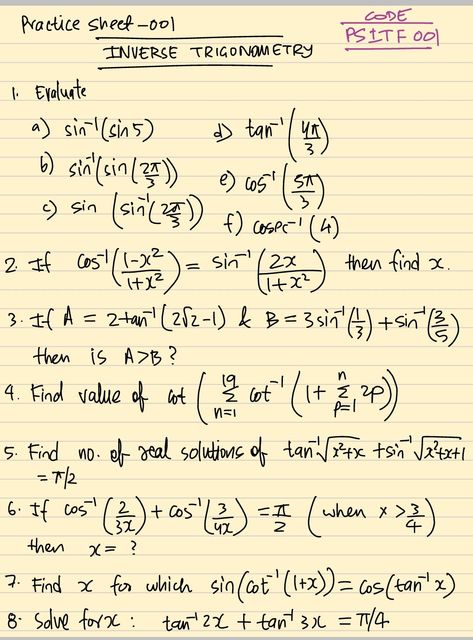 Practice Sheet-001
CODE
PSITF 001
INVERSE TRIGONOMETRY
1. Evaluate
a) sin⁻¹(sin 5) d) tan⁻¹(4π/3)
b) sin⁻¹(sin(2π/3)) e) cos⁻¹(5π/3)
c) sin(sin⁻¹(2π/3)) f) cosec⁻¹(4)
2. If cos⁻¹((1-x²)/(1+x²)) = sin⁻¹(2x/(1+x²)) then find x.
3. If A = 2tan⁻¹(2√2-1) & B = 3sin⁻¹(1/3) + sin⁻¹(3/5)
then is A>B?
4. Find value of cot(∑_{n=1}^{19} cot⁻¹(1 + ∑_{p=1}^{n} 2p))
5. Find no. of real solutions of tan⁻¹√(x²+x) + sin⁻¹√(x²+x+1)
= π/2
6. If cos⁻¹(2/3x) + cos⁻¹(3/4x) = π/2 (when x > 3/4)
then x = ?
7. Find x for which sin(cot⁻¹(1+x)) = cos(tan⁻¹x)
8. Solve for x: tan⁻¹2x + tan⁻¹3x = π/4